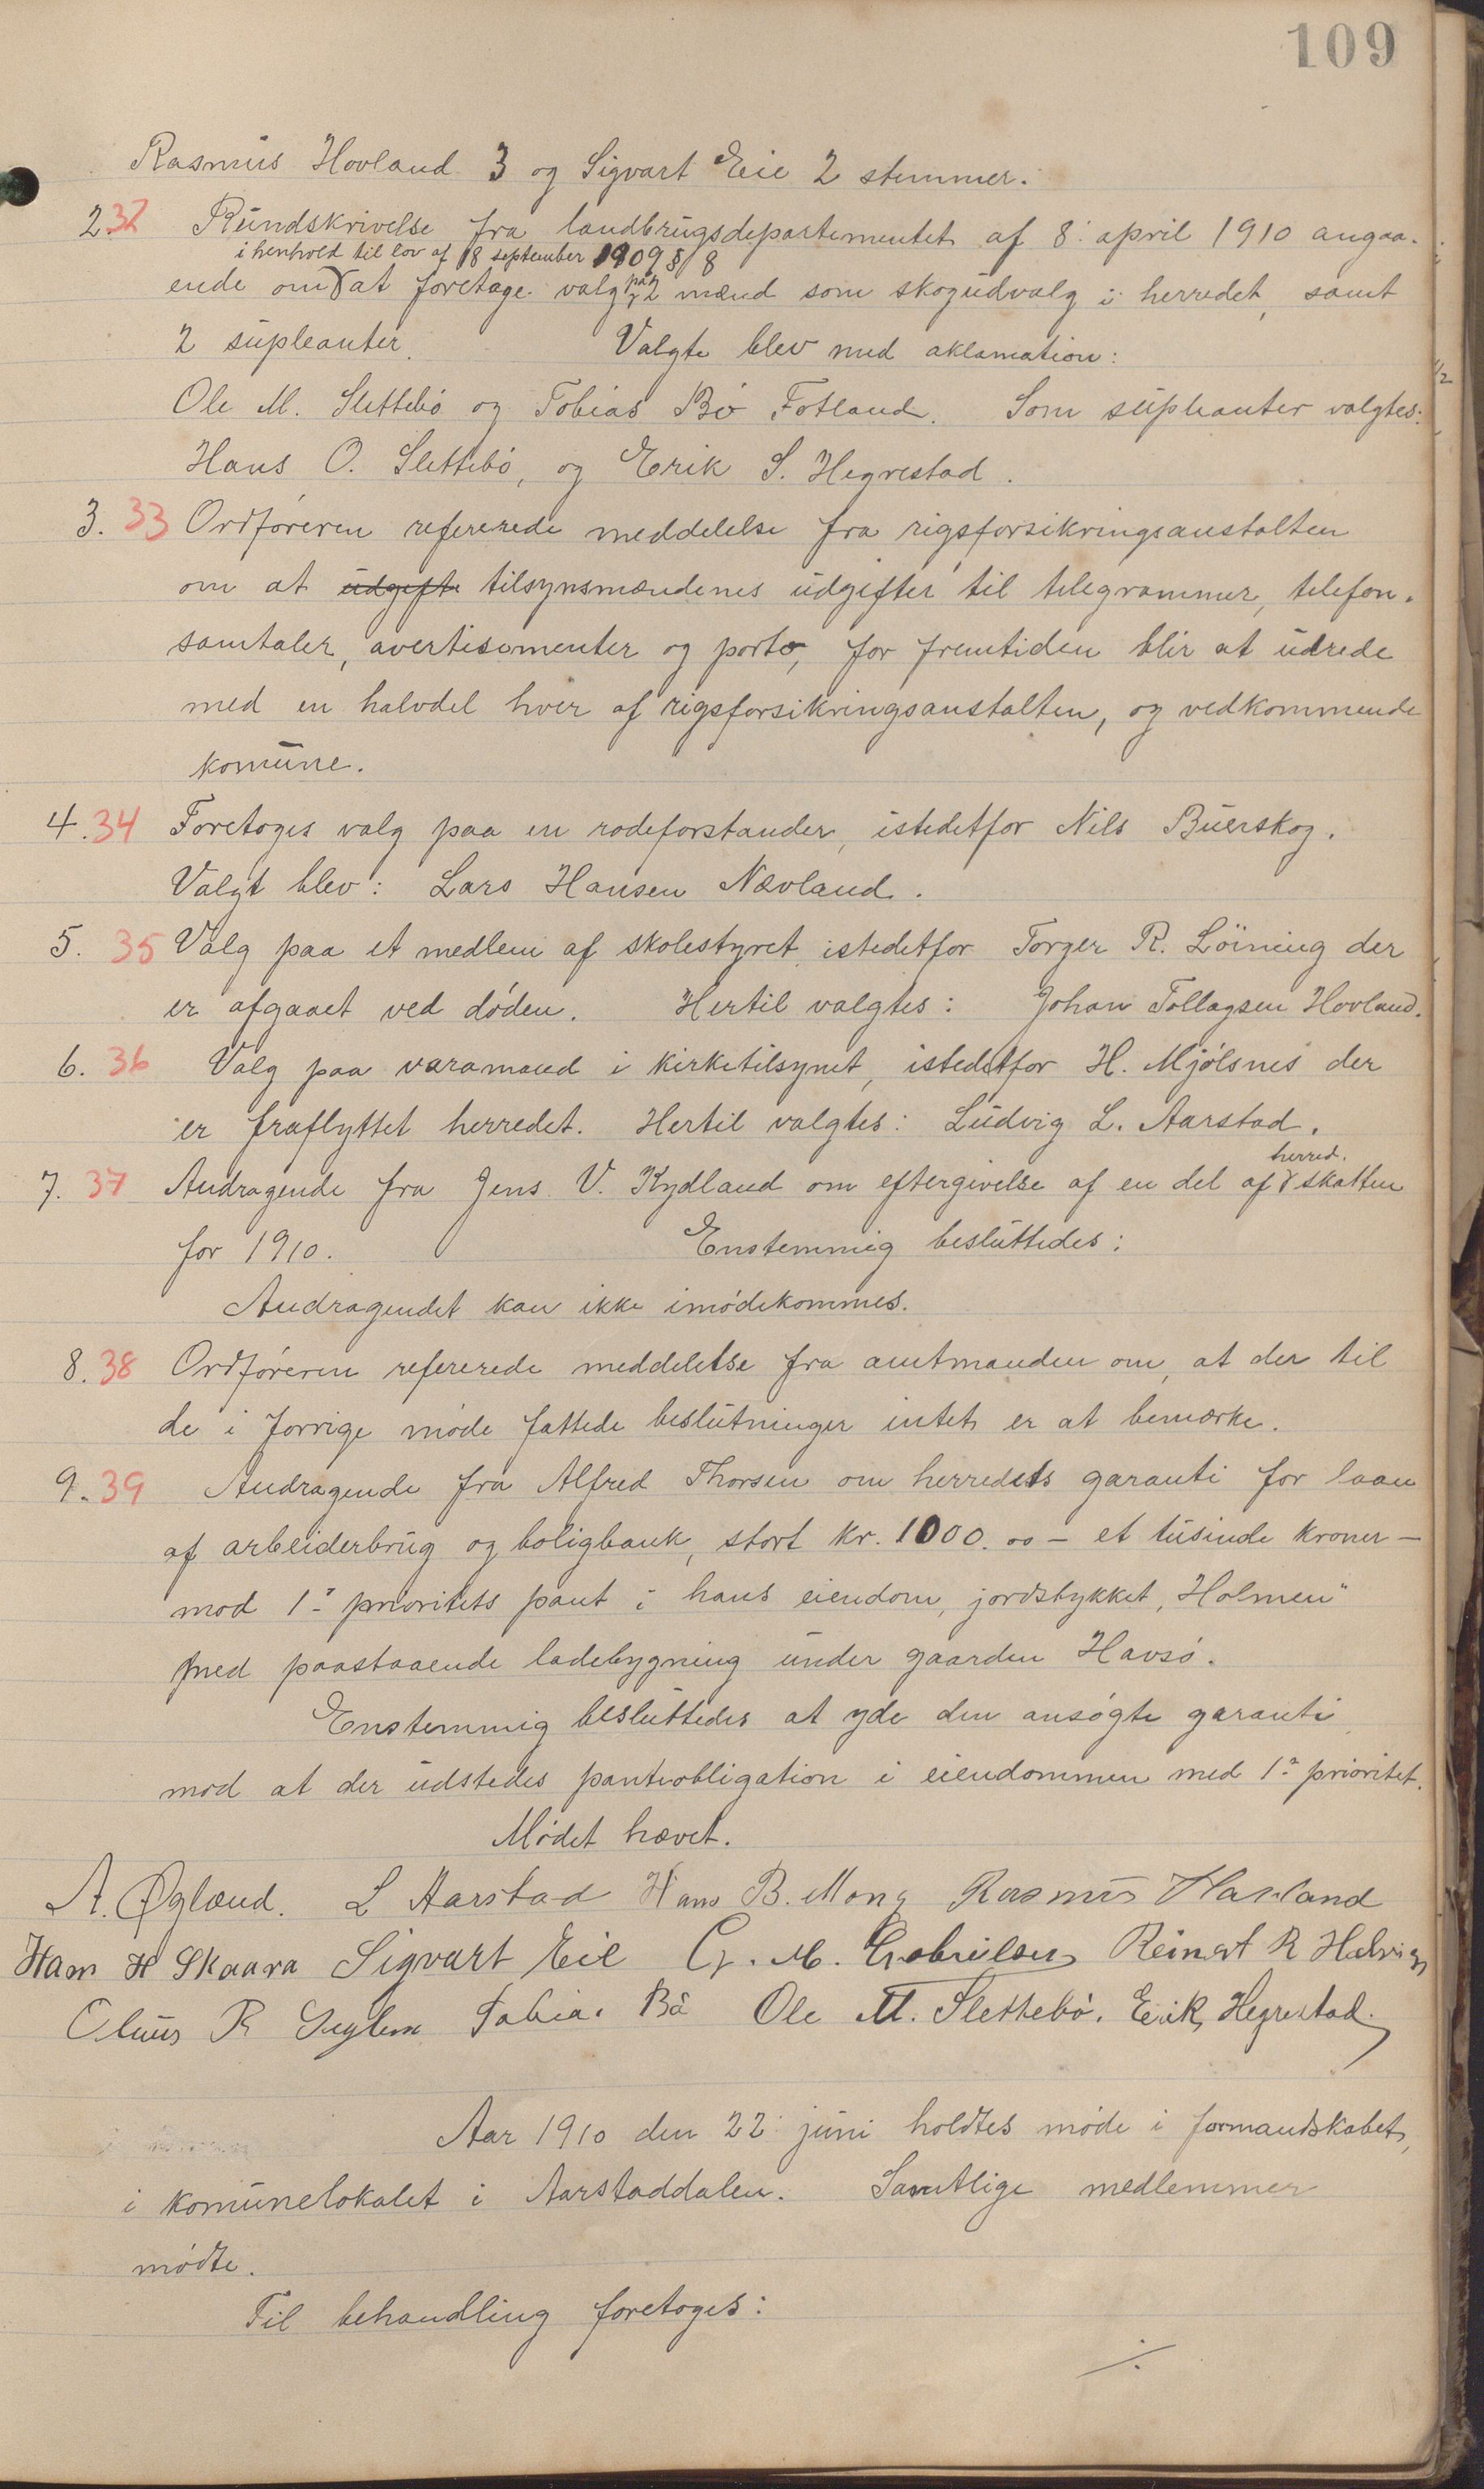 109
Rasmus Hovland 3 og Sigvart Eie 2 stemmer.
2. 32 Rundskrivelse fra landbrugsdepartementet af 8. april 1910 angaa-
i henhold til lov af 18 september 1909 § 8
ende om at foretage valg paa 2 mænd som skogudvalg i herredet, samt
2 supleanter. Valgte blev med aklamation:
Ole M. Slettebö og Tobias Bö Fotland. Som supleanter valgtes:
Hans O. Slettebö, og Erik S. Hegrestad.
3. 33 Ordföreren refererede meddelelse fra rigsforsikringsanstalten
om at udgifte tilsynsmændenes udgifter til telegrammer, telefon-
samtaler, avertisementer og porto, for fremtiden blir at udrede
med en halvdel hver af rigsforsikringsanstalten, og vedkommende
komune.
4. 34 Foretoges valg paa en rodeforstander, istedetfor Nils Buerskog.
Valgt blev: Lars Hansen Nævland.
5. 35 Valg paa et medlem af skolestyret istedetfor Torger R. Löining der
er afgaaet ved döden. Hertil valgtes: Johan Tollagsen Hovland.
6. 36 Valg paa varamand i kirketilsynet, istedetfor H. Mjölsnes der
er fraflyttet herredet. Hertil valgtes: Ludvig L. Aarstad.
herred.
7. 37 Andragende fra Jens V. Kydland om eftergivelse af en del af skatten
for 1910. Enstemmig besluttedes:
Andragendet kan ikke imödekommes.
8. 38 Ordföreren refererede meddelelse fra amtmanden om, at der til
de i forrige möde fattede beslutninger intet er at bemærke.
9. 39 Andragende fra Alfred Thorsen om herredets garanti for laan
af arbeiderbrug og boligbank, stort kr. 1000.00 – et tusinde kroner –
mod 1ste prioritets pant i hans eiendom, jordstykket, „Holmen"
med paastaaende ladebygning under gaarden Havsö.
Enstemmig besluttedes at yde den ansögte garanti
mod at der udstedes panteobligation i eiendommen med 1ste prioritet.
Mödet hævet.
A. Øglænd. L Aarstad Hans B. Mong Rasmus Havland
Hans H Skaara Sigvart Eie G. M. Gabrielsen Reinert R Helvig
Oluus R Seglem Tobias Bö Ole M. Slettebö. Erik Hegrestad.
Aar 1910 den 22. juni holdtes möde i formandskabet,
i komunelokalet i Aarstaddalen. Samtlige medlemmer
mödte.
Til behandling foretoges:
./.